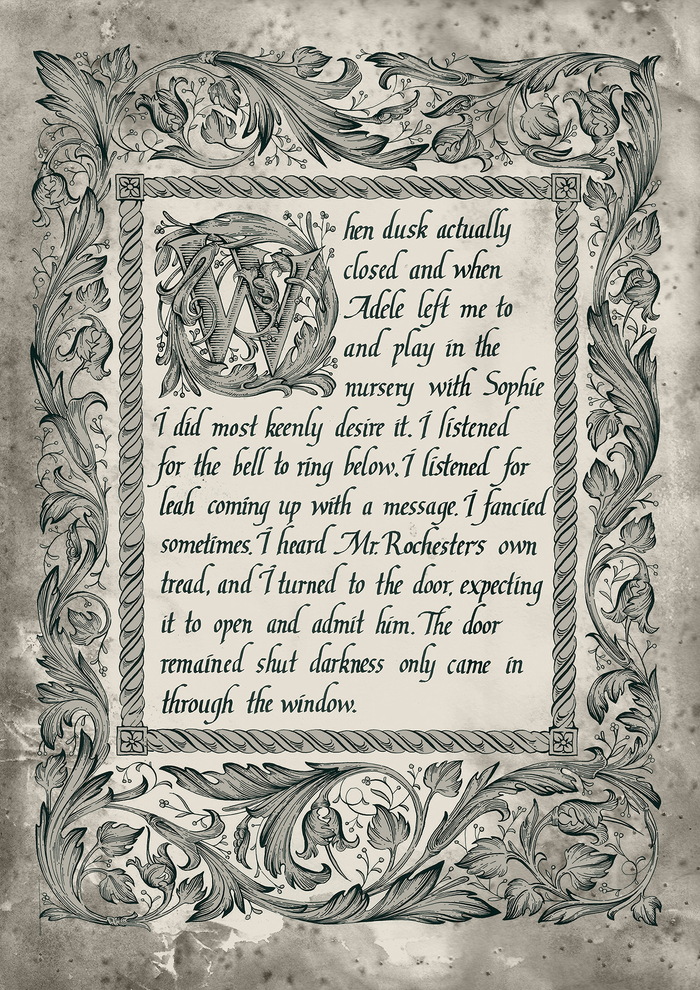 When dusk actually
closed and when
Adele left me to
and play in the
nursery with Sophie
I did most keenly desire it. I listened
for the bell to ring below. I listened for
leah coming up with a message. I fancied
sometimes. I heard Mr. Rochester's own
tread, and I turned to the door, expecting
it to open and admit him. The door
remained shut darkness only came in
through the window.